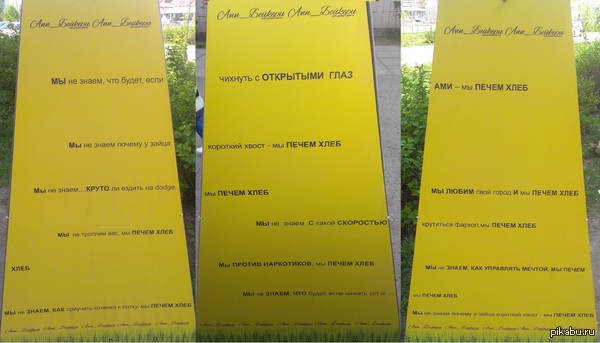 Апп_Бейкери Апп_Бейкери
МЫ не знаем, что будет, если
Мы не знаем почему у зайца
Мы не знаем....КРУТО ли ездить на dodge,
Мы не троллим вас, мы ПЕЧЕМ ХЛЕБ
ХЛЕБ
Мы не ЗНАЕМ, КАК приучить котенка к лотку, мы ПЕЧЕМ ХЛЕБ
Апп_Бейкери Апп_Бейкери
чихнуть с ОТКРЫТЫМИ ГЛАЗ
короткий хвост - мы ПЕЧЕМ ХЛЕБ
мы ПЕЧЕМ ХЛЕБ
Мы не знаем С какой СКОРОСТЬЮ
Мы ПРОТИВ НАРКОТИКОВ, мы ПЕЧЕМ ХЛЕБ
Мы не ЗНАЕМ, ЧТО будет, если нажать ctrl w --
Апп_Бейкери Апп_Бейкери
АМИ – мы ПЕЧЕМ ХЛЕБ
МЫ ЛЮБИМ свой город И мы ПЕЧЕМ ХЛЕБ
крутиться фаркоп,мы ПЕЧЕМ ХЛЕБ
Мы не ЗНАЕМ, КАК УПРАВЛЯТЬ МЕЧТОЙ, МЫ ПЕЧЕМ
мы ПЕЧЕМ ХЛЕБ
Мы не знаем почему у зайца короткий хвост - мы ПЕЧЕМ ХЛЕБ
pikabu.ru